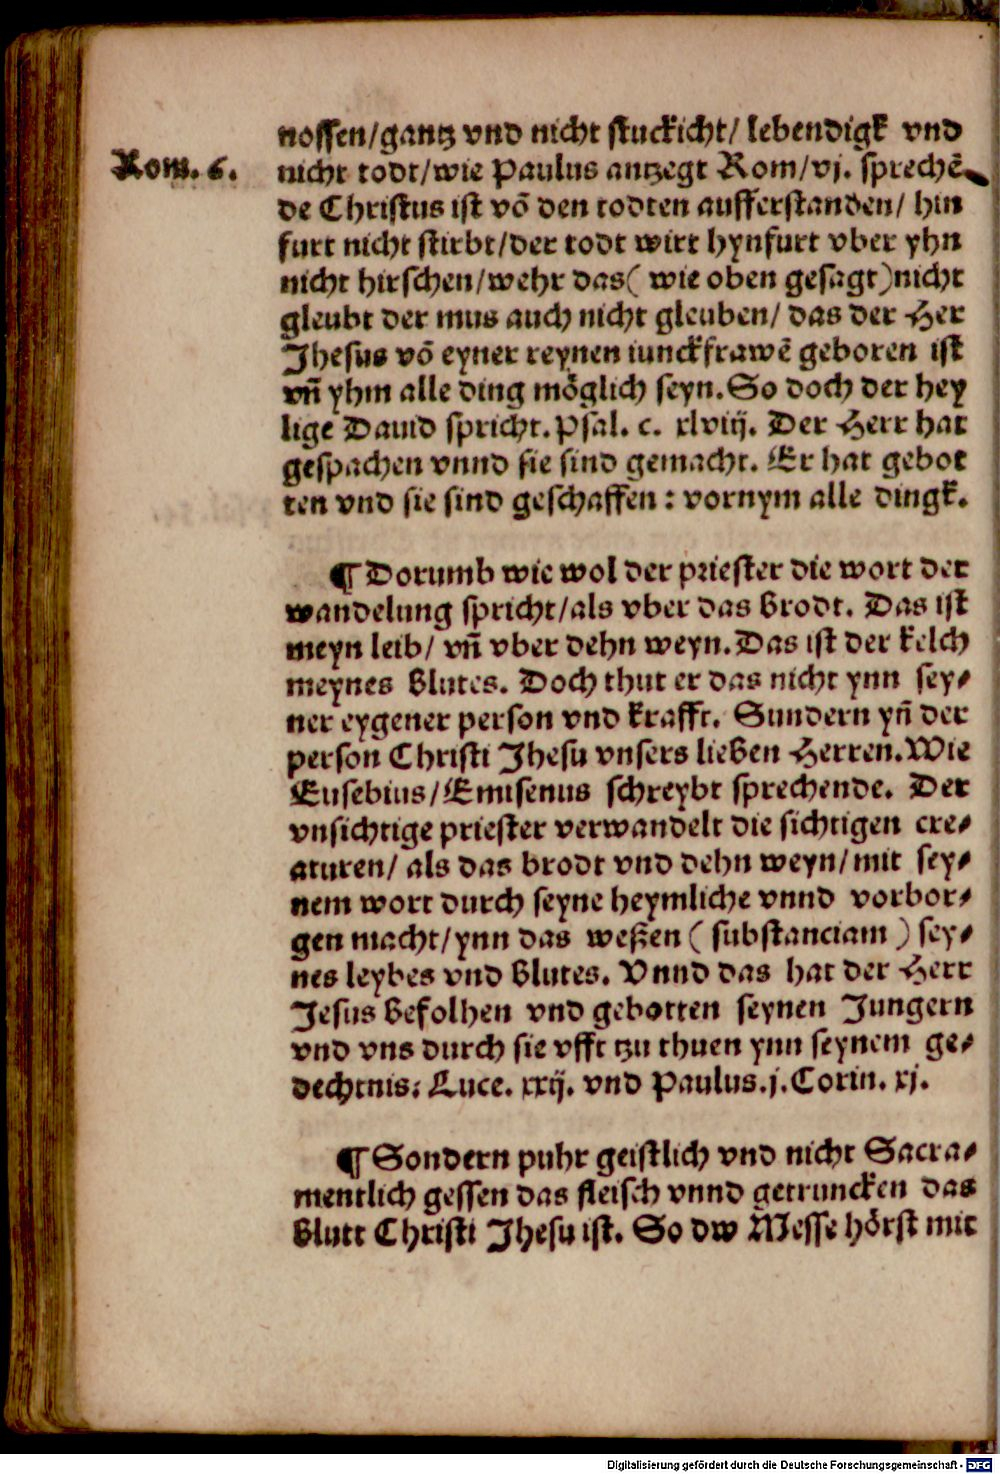 nossen/gantz vnd nicht stuckicht/ lebendigk vnd
Rom. 6.
nicht todt/wie Paulus antzegt Rom/vj. sprechē
de Christus ist võ den todten aufferstanden/ hin
furt nicht stirbt/der todt wirt hynfurt vber yhn
nicht hirschen/wehr das( wie oben gesagt)nicht
gleubt der mus auch nicht gleuben/ das der Her
Jhesus võ eyner reynen iunckfrawē geboren ist
vñ yhm alle ding möglich seyn. So doch der hey
lige Dauid spricht. Psal. c. xlviij. Der Herr hat
gespachen vnnd sie sind gemacht. Er hat gebot
ten vnd sie sind geschaffen : vornym alle dingk.
¶ Dorumb wie wol der priester die wort der
wandelung spricht/als vber das brodt. Das ist
meyn leib/ vñ vber dehn weyn. Das ist der kelch
meynes blutes. Doch thut er das nicht ynn sey⸗
ner eygener person vnd krafft. Sundern yñ der
person Christi Jhesu vnsers lieben Herren. Wie
Eusebius/Emisenus schreybt sprechende. Der
vnsichtige priester verwandelt die sichtigen cre⸗
aturen/ als das brodt vnd dehn weyn/mit sey⸗
nem wort durch seyne heymliche vnnd vorbor⸗
gen macht/ynn das weßen ( substanciam ) sey⸗
nes leybes vnd blutes. Vnnd das hat der Herr
Jesus befolhen vnd gebotten seynen Jungern
vnd vns durch sie vfft tzu thuen ynn seynem ge⸗
dechtnis: Luce. xxij. vnd Paulus. j. Corin. xj.
¶ Sondern puhr geistlich vnd nicht Sacra⸗
mentlich gessen das fleisch vnnd getruncken das
blutt Christi Jhesu ist. So dw Messe hörst mit
Digitalisierung gefördert durch die Deutsche Forschungsgemeinschaft - DFG